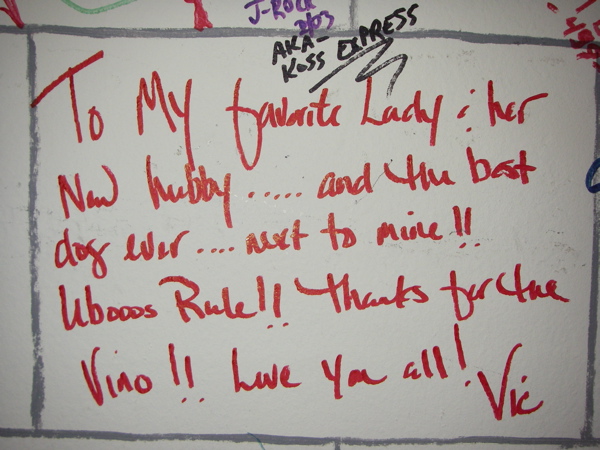 J-ROCK
2/03
AKA-
KOSS EXPRESS
To My favorite Lady & her
New hubby ..... and the best
dog ever .... next to mine!!
Ubooos Rule!! Thanks for the
Vino!! Love you all!
Vic